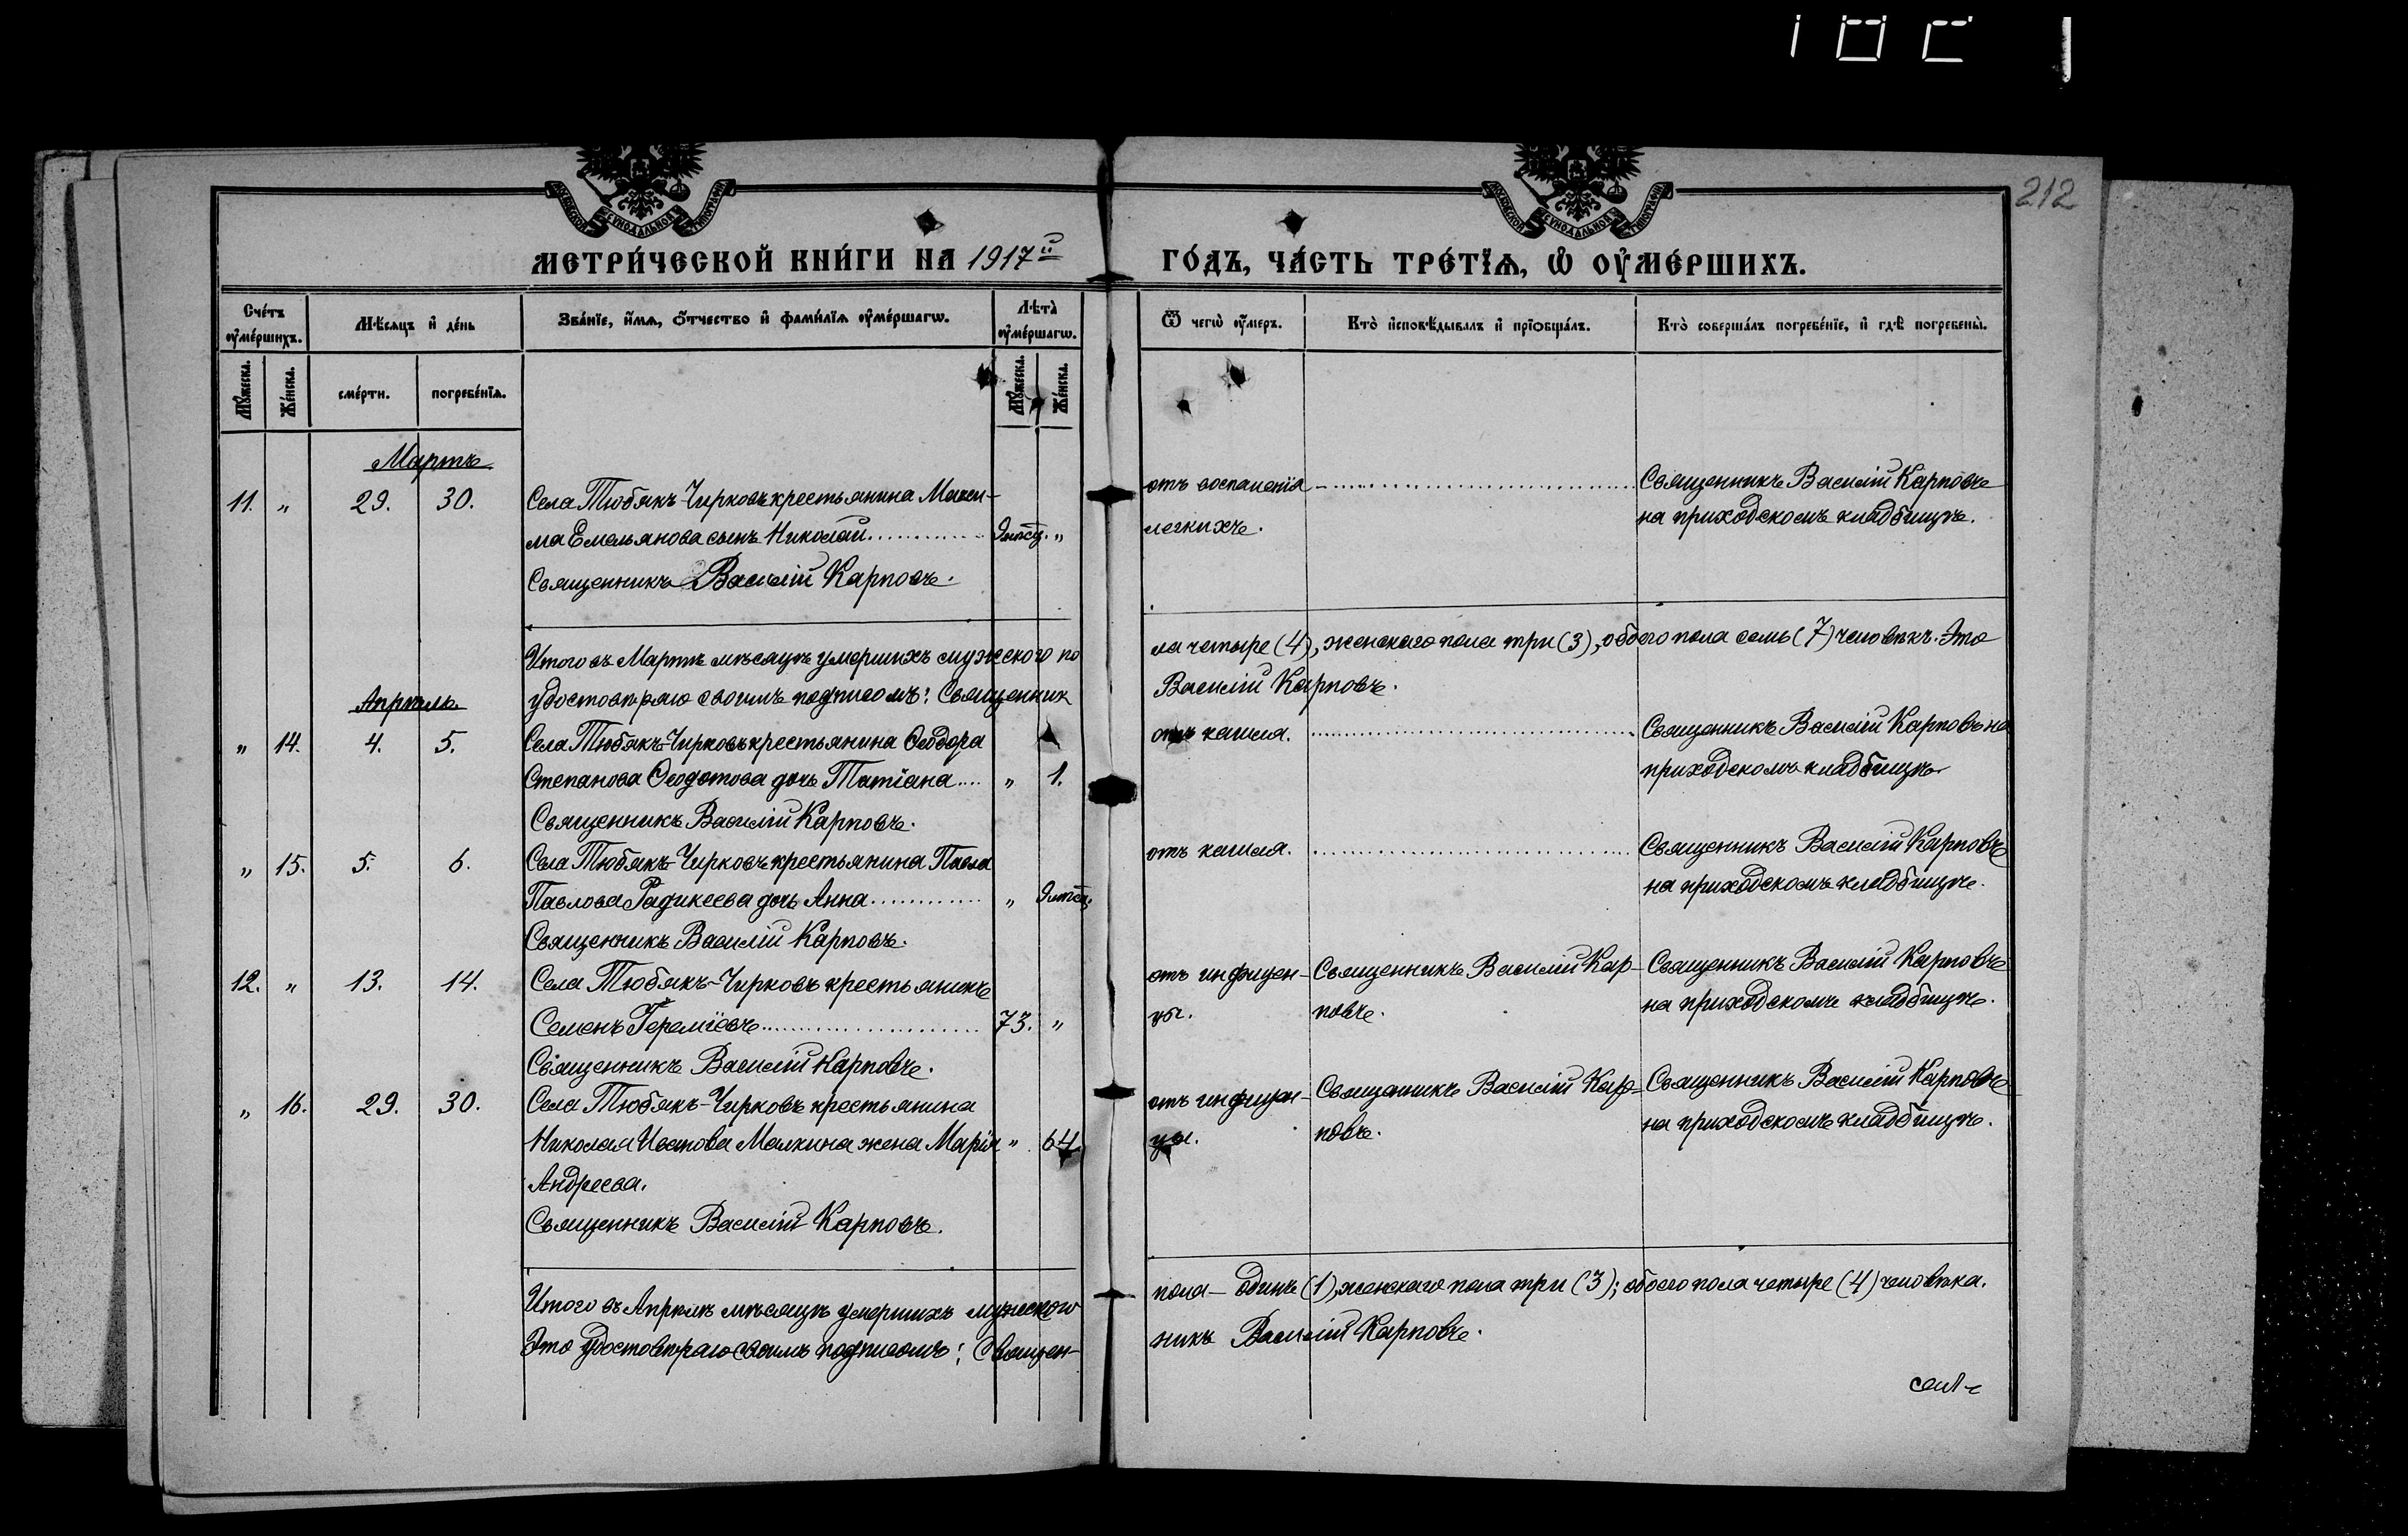 212
МОСКОВСКОЙ СѴНОДАЛЬНОЙ ТИПОГРАФІИ
МОСКОВСКОЙ СѴНОДАЛЬНОЙ ТИПОГРАФІИ
МЕТРИ́ЧЕСКОЙ КНИ́ГИ НА 1917й ГО́ДЪ, ЧА́СТЬ ТРЕ́ТЇѦ, Ѡ ОУМЕ́РШИХЪ.
Сче́тъ оуме́ршихъ.
Мѣ́сѧцъ и де́нь
Зва́нїе, и́мѧ, ѻ́тчество и фами́лїѧ оуме́ршагѡ.
Лѣта̀ оуме́ршагѡ.
Ѿ чегѡ̀ оу́меръ.
Кто̀ и҆сповѣ́дывалъ и прїѡбща́лъ.
Кто̀ соверша́лъ погребе́нїе, и гдѣ̀ погребены̀.
Мꙋ́жеска.
Же́нска.
сме́рти.
погребе́нїѧ.
Мꙋ́жеска.
Же́нска.
Мартъ
11. " 29. 30. Села Тюбякъ-Чирковъ крестьянина Макси-
ма Емельянова сынъ Николай 9 мѣсяц. "
Священникъ Василій Карповъ.
отъ воспаленія
легкихъ.
Священникъ Василій Карповъ
на приходскомъ кладбищѣ.
Итого въ Мартѣ мѣсяцѣ умершихъ мужескаго по
ла четыре (4), женскаго пола три (3), обоего пола семь (7) человѣкъ. Это
удостовѣряю своимъ подписомъ: Священник
Василій Карповъ.
Апрѣль
" 14. 4. 5. Села Тюбякъ-Чирковъ крестьянина Ѳеодора
Степанова Ѳеодотова дочь Татіана " 1.
Священникъ Василій Карповъ.
отъ кашля.
Священникъ Василій Карповъ на
приходскомъ кладбищѣ
" 15. 5. 6. Села Тюбякъ-Чирковъ крестьянина Павла
Павлова Радикеева дочь Анна " 9 мѣсяц.
Священникъ Василій Карповъ.
отъ кашля.
Священникъ Василій Карповъ
на приходскомъ кладбищѣ.
12. " 13. 14. Села Тюбякъ-Чирковъ крестьянинъ
Семенъ 73. "
Священникъ Василій Карповъ.
отъ инфлуен-
цы.
Священникъ Василій Кар-
повъ.
Священникъ Василій Карповъ
на приходскомъ кладбищѣ.
" 16. 29. 30. Села Тюбякъ-Чирковъ крестьянина
Николая Иванова Малкина жена Марія " 64
Андреева.
Священникъ Василій Карповъ.
отъ инфлуен-
цы.
Священникъ Василій Кар-
повъ.
Священникъ Василій Карповъ
на приходскомъ кладбищѣ.
Итого въ Апрѣлѣ мѣсяцѣ умершихъ мужескаго
пола - одинъ (1), женскаго пола три (3); обоего пола четыре (4) человѣка.
Это удостовѣряю своимъ подписомъ: Священ-
никъ Василій Карповъ.